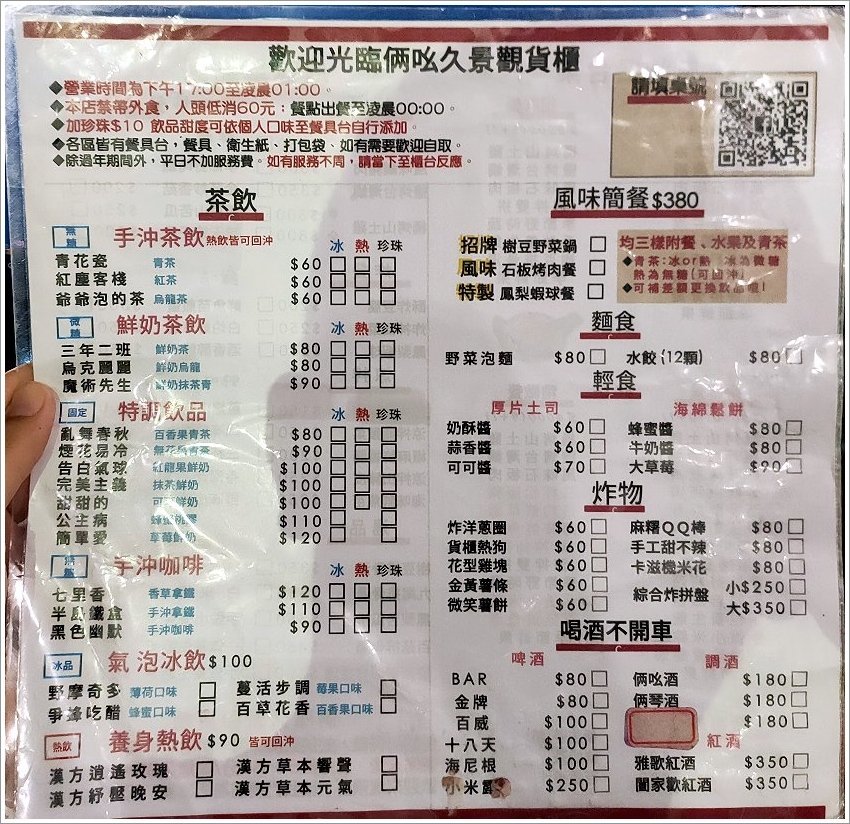 歡迎光臨倆吆久景觀貨櫃
◆營業時間為下午17:00至凌晨01:00。
◆本店禁帶外食，人頭低消60元；餐點出餐至凌晨00:00。
◆加珍珠$10 飲品甜度可依個人口味至餐具台自行添加。
◆各區皆有餐具台，餐具、衛生紙、打包袋、如有需要歡迎自取。
◆除過年期間外，平日不加服務費。如有服務不周，請當下至櫃台反應。
請填桌號
茶飲
無糖 手沖茶飲 熱飲皆可回沖 冰 熱 珍珠
青花瓷 青茶 $60
紅塵客棧 紅茶 $60
爺爺泡的茶 烏龍茶 $60
微糖 鮮奶茶飲 冰 熱 珍珠
三年二班 鮮奶茶 $80
烏克麗麗 鮮奶烏龍 $80
魔術先生 鮮奶抹茶青 $90
固定 特調飲品 冰 熱 珍珠
亂舞春秋 百香果青茶 $80
煙花易冷 無花果青茶 $90
告白氣球 紅龍果鮮奶 $100
完美主義 抹茶鮮奶 $100
甜甜的 可可鮮奶 $100
公主病 蜂蜜 $110
簡單愛 草莓鮮奶 $120
無糖 手沖咖啡 冰 熱 珍珠
七里香 香草拿鐵 $120
半島鐵盒 手沖拿鐵 $110
黑色幽默 手沖咖啡 $90
冰品 氣泡冰飲 $100
野摩奇多 薄荷口味 蔓活步調 莓果口味
爭鋒吃醋 蜂蜜口味 百草花香 百香果口味
熱飲 養身熱飲 $90 皆可回沖
漢方逍遙玫瑰 漢方草本響聲
漢方紓壓晚安 漢方草本元氣
風味簡餐$380
招牌 樹豆野菜鍋
風味 石板烤肉餐
特製 鳳梨蝦球餐
均三樣附餐、水果及青茶
◆青茶:冰or熱 冰為微糖
熱為無糖(可回沖)
◆可補差額更換飲品喔!
麵食
野菜泡麵 $80 水餃(12顆) $80
輕食
厚片土司 海綿鬆餅
奶酥醬 $60 蜂蜜醬 $80
蒜香醬 $60 牛奶醬 $80
可可醬 $70 大草莓 $90
炸物
炸洋蔥圈 $60 麻糬QQ棒 $80
貨櫃熱狗 $60 手工甜不辣 $80
花型雞塊 $60 卡滋機米花 $80
金黃薯條 $60 綜合炸拼盤 小$250
微笑薯餅 $60 大$350
喝酒不開車
啤酒 調酒
BAR $80 倆吆酒 $180
金牌 $80 倆琴酒 $180
百威 $100 $180
十八天 $100 紅酒
海尼根 $100 雅歌紅酒 $350
小米露 $250 闔家歡紅酒 $350